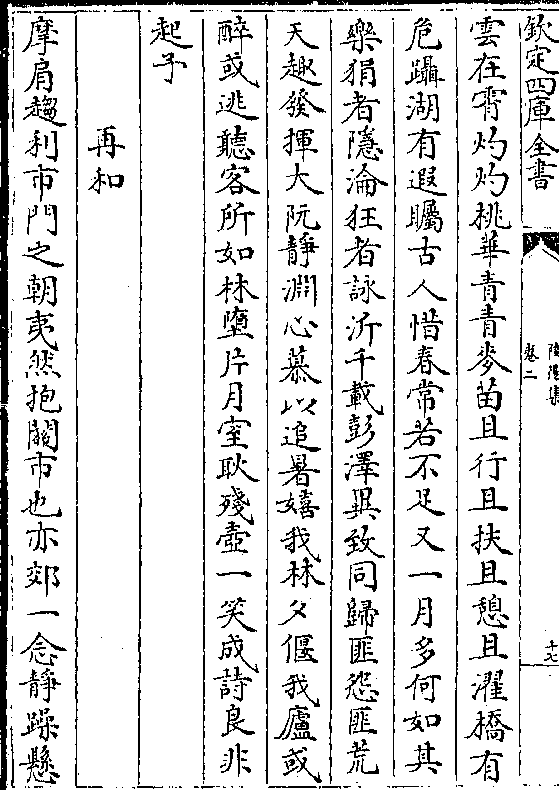 欽定四庫全書
卷二
雲在霄灼灼桃華青青麥苗且行且扶且憩且濯橋有
危躡湖有遐矚古人惜春常若不足又一月多何如其
樂狷者隱淪狂者詠沂千載彭澤異致同歸匪怨匪荒
天趣發揮大阮靜淵心慕以追暑嬉我林夕偃我廬或
醉或逃聽客所如林墮片月室耿殘壺一笑成詩良非
起予
再和
摩肩趨利市門之朝夷然抱關市也亦郊一念靜躁懸